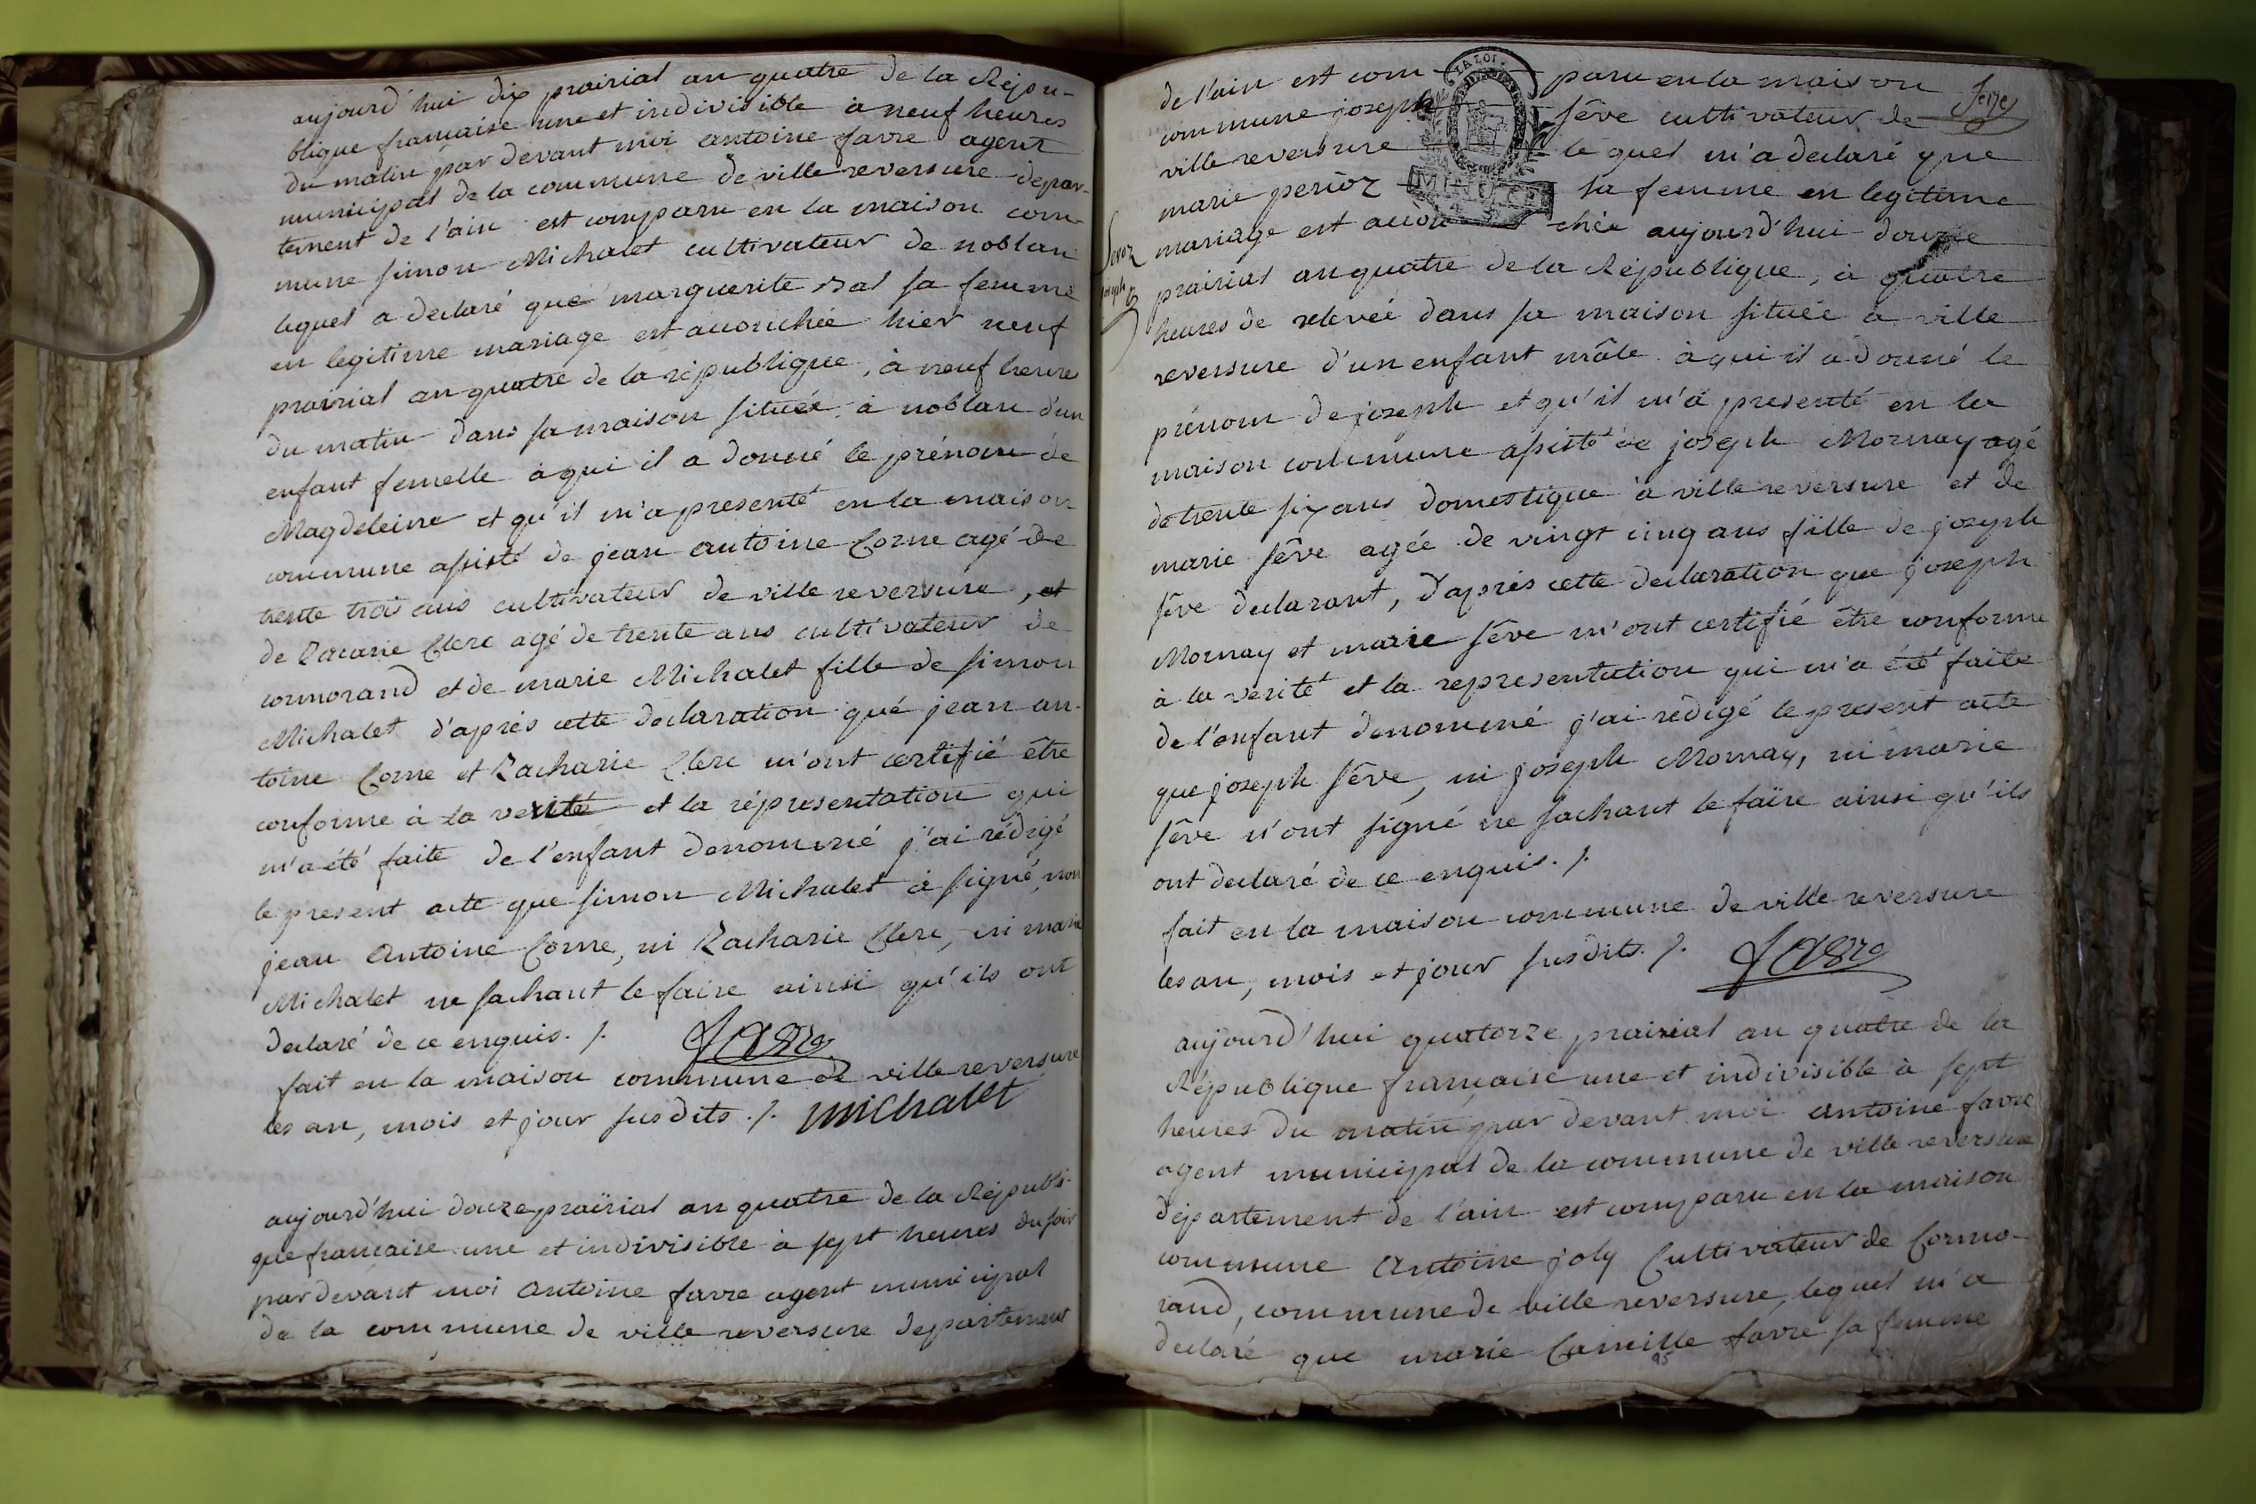 aujourd'hui dix prairial an quatre de la Répu-
blique francaise une et indivisible à neuf heures
du matin par devant moi antoine favre agent
municipal de la commune de ville reversure depar-
tement de l'ain est comparu en la maison com-
mune simon Michalet cultivateur de noblan
lequel a declaré que marguerite Bal sa femme
en legitime mariage est accouchée hier neuf
prairial an quatre de la république, à neuf heures
du matin dans sa maison située à noblan d'un
enfant femelle à qui il a donné le prénom de
Magdeleine et qu'il m'a presenté en la maison
commune assisté de jean antoine Corne agé de
trente trois ans cultivateur de ville reversure, et
de Zacarie Clerc agé de trente ans cultivateur de
cormorand et de marie Michalet fille de simon
Michalet d'après cette declaration qué jean an-
toine Corne et Zacharie Clerc m'ont certifié être
conforme à la verité et la réprésentation qui
m'a été faite de l'enfant denommé j'ai rédigé
le present acte que simon Michalet à signé, non
jean Antoine Corne, ni Zacharie Clerc, ni marie
Michalet ne sachant le faire ainsi qu'ils ont
declaré de ce enquis ./. favre
fait en la maison commune de ville reversure
les an, mois et jour susdits ./. michalet
aujourd'hui douze prairial an quatre de la Républi-
que francaise une et indivisible à sept heures du soir
par devant moi antoine favre agent municipal
de la commune de ville reversure departement
LA LOI
de l'ain est com- paru en la maison
commune joseph sêve cultivateur de
ville reversure le quel m'a declaré que
marie perior sa femme en legitime
mariage est accou- chée aujourd'hui douze
prairial an quatre de la République, à quatre
heures de relevée dans sa maison située à ville
reversure d'un enfant mâle à qui il a donné le
prénom de joseph et qu'il m'a presenté en la
maison commune assisté de joseph Mornay agé
de trente six ans domestique à ville reversure et de
marie sêve agée de vingt cinq ans fille de joseph
sêve declarant, d'après cette declaration que joseph
Mornay et marie sêve m'ont certifié être conforme
à la verité et la representation qui m'a été faite
de l'enfant denommé j'ai rédigé le present acte
que joseph sêve, ni joseph Mornay, ni marie
sêve n'ont signé ne sachant le faire ainsi qu'ils
ont declaré de ce enquis ./.
fait en la maison commune de ville reversure
les an, mois et jour susdits ./. favre
aujourd'hui quatorze prairial an quatre de la
République francaise une et indivisible à sept
heures du matin par devant moi antoine favre
agent municipal de la commune de ville reversure
département de l'ain est comparu en la maison
commune Antoine joly Cultivateur de Cormo-
rand, commune de ville reversure, lequel m'a
declaré que marie Camille favre sa femme
95